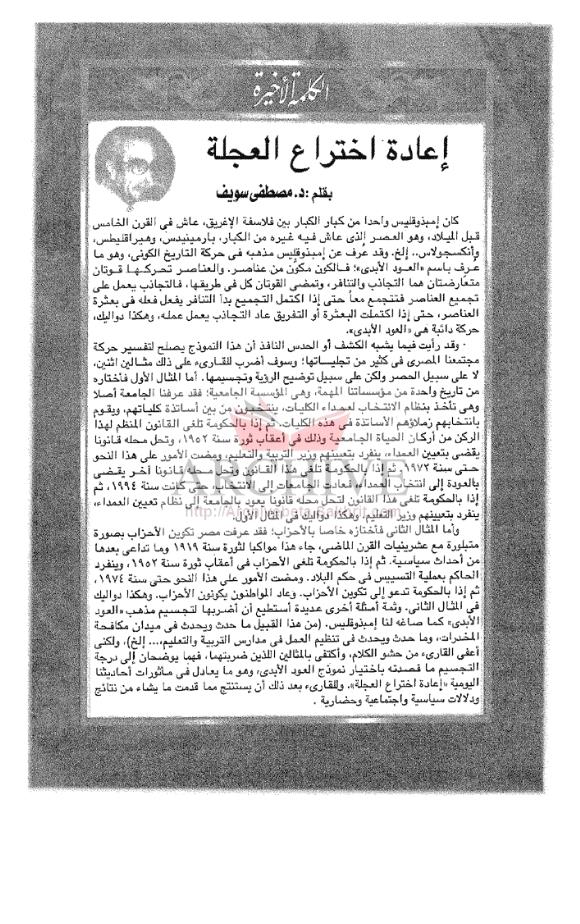 الكلمة الأخيرة
إعادة اختراع العجلة
بقلم : د. مصطفى سويف
كان إمبذوقليس واحدا من كبار الكبار بين فلاسفة الإغريق، عاش فى القرن الخامس
قبل الميلاد، وهو العصر الذى عاش فيه غيره من الكبار، بارمنيدس، وهيراقليطس،
وأنكسجولاس.. إلخ. وقد عُرف عن إمبذوقليس مذهبه فى حركة التاريخ الكونى، وهو ما
عُرف باسم «العود الأبدى»؛ فالكون مكوّن من عناصر. والعناصر تحركها قوتان
متعارضتان هما التجاذب والتنافر، وتمضى القوتان كل فى طريقها، فالتجاذب يعمل على
تجميع العناصر فتتجمع معاً حتى إذا اكتمل التجميع بدأ التنافر يفعل فعله فى بعثرة
العناصر، حتى إذا اكتملت البعثرة أو التفريق عاد التجاذب يعمل عمله، وهكذا دواليك،
حركة دائبة هى «العود الأبدى».
وقد رأيت فيما يشبه الكشف أو الحدس النافذ أن هذا النموذج يصلح لتفسير حركة
مجتمعنا المصرى فى كثير من تجلياتها؛ وسوف أضرب للقارىء على ذلك مثالين اثنين،
لا على سبيل الحصر ولكن على سبيل توضيح الرؤية وتجسيمها. أما المثال الأول فأختاره
من تاريخ واحدة من مؤسساتنا المهمة، وهى المؤسسة الجامعية؛ فقد عرفنا الجامعة أصلا
وهى تأخذ بنظام الانتخاب لعمداء الكليات، ينتخبون من بين أساتذة كلياتهم، ويقوم
بانتخابهم زملاؤهم الأساتذة فى هذه الكليات. ثم إذا بالحكومة تلغى القانون المنظم لهذا
الركن من أركان الحياة الجامعية وذلك فى أعقاب ثورة سنة ١٩٥٢، وتحل محله قانونا
يقضى بتعيين العمداء، ينفرد بتعيينهم وزير التربية والتعليم، ومضت الأمور على هذا النحو
حتى سنة ١٩٧٢، ثم إذا بالحكومة تلغى هذا القانون وتحل محله قانونا آخر يقضى
بالعودة إلى انتخاب العمداء، فعادت الجامعات إلى الانتخاب، حتى كانت سنة ١٩٩٤، ثم
إذا بالحكومة تلغى هذا القانون لتحل محله قانونا يعود بالجامعة إلى نظام تعيين العمداء،
ينفرد بتعيينهم وزير التعليم. وهكذا دواليك فى المثال الأول.
وأما المثال الثانى فأختاره خاصا بالأحزاب؛ فقد عرفت مصر تكوين الأحزاب بصورة
متبلورة مع عشرينيات القرن الماضى، جاء هذا مواكبا لثورة سنة ١٩١٩ وما تداعى بعدها
من أحداث سياسية. ثم إذا بالحكومة تلغى الأحزاب فى أعقاب ثورة سنة ١٩٥٢، وينفرد
الحاكم بعملية التسييس فى حكم البلاد. ومضت الأمور على هذا النحو حتى سنة ١٩٧٤،
ثم إذا بالحكومة تدعو إلى تكوين الأحزاب. وعاد المواطنون يكونون الأحزاب. وهكذا دواليك
فى المثال الثانى. وثمة أمثلة أخرى عديدة أستطيع أن أضربها لتجسيم مذهب «العود
الأبدى» كما صاغه لنا إمبذوقليس. (من هذا القبيل ما حدث ويحدث فى ميدان مكافحة
المخدرات، وما حدث ويحدث فى تنظيم العمل فى مدارس التربية والتعليم.... إلخ)، ولكنى
أعفى القارىء من حشو الكلام، وأكتفى بالمثالين اللذين ضربتهما، فهما يوضحان إلى درجة
التجسيم ما قصدته باختيار نموذج العود الأبدى، وهو ما يعادل فى مأثورات أحاديثنا
اليومية «إعادة اختراع العجلة». وللقارىء بعد ذلك أن يستنتج مما قدمت ما يشاء من نتائج
ودلالات سياسية واجتماعية وحضارية .
ARCHIVE